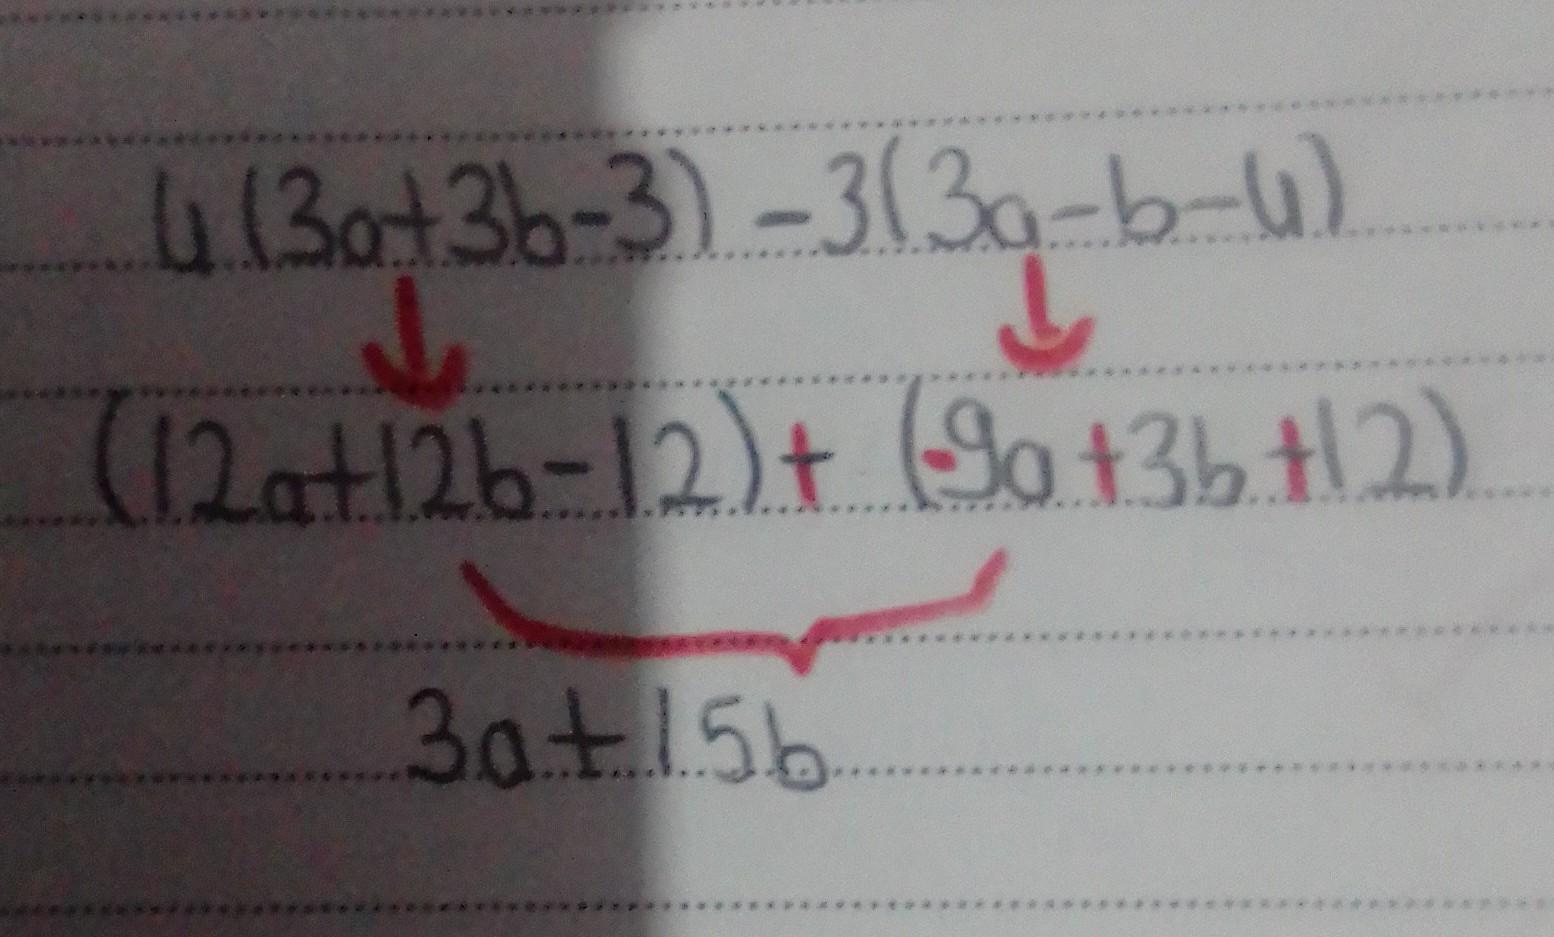 4(3a+3b-3) -3(3a-b-4)
(12a+12b-12)+ (-9a+3b+12)
3a+15b